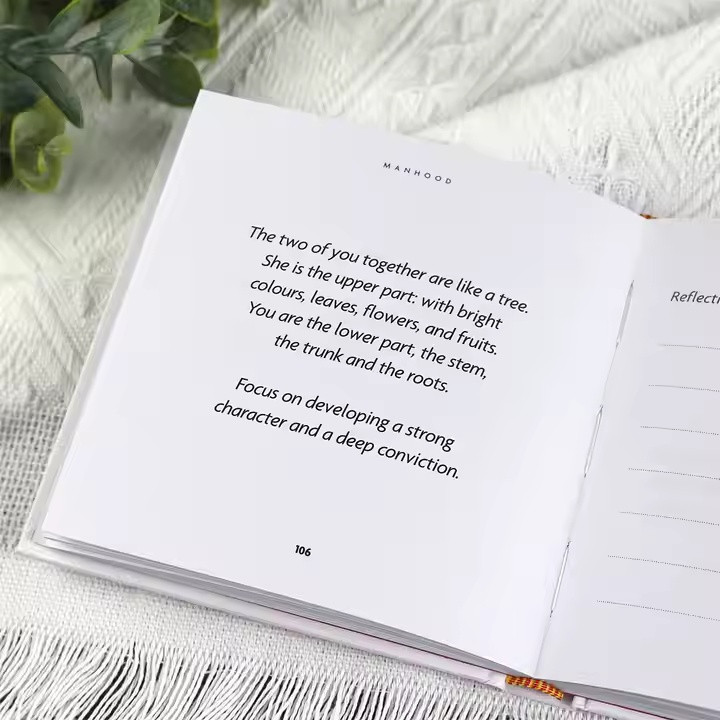 MANHOOD
The two of you together are like a tree.
She is the upper part: with bright
colours, leaves, flowers, and fruits.
You are the lower part, the stem,
the trunk and the roots.
Focus on developing a strong
character and a deep conviction.
106